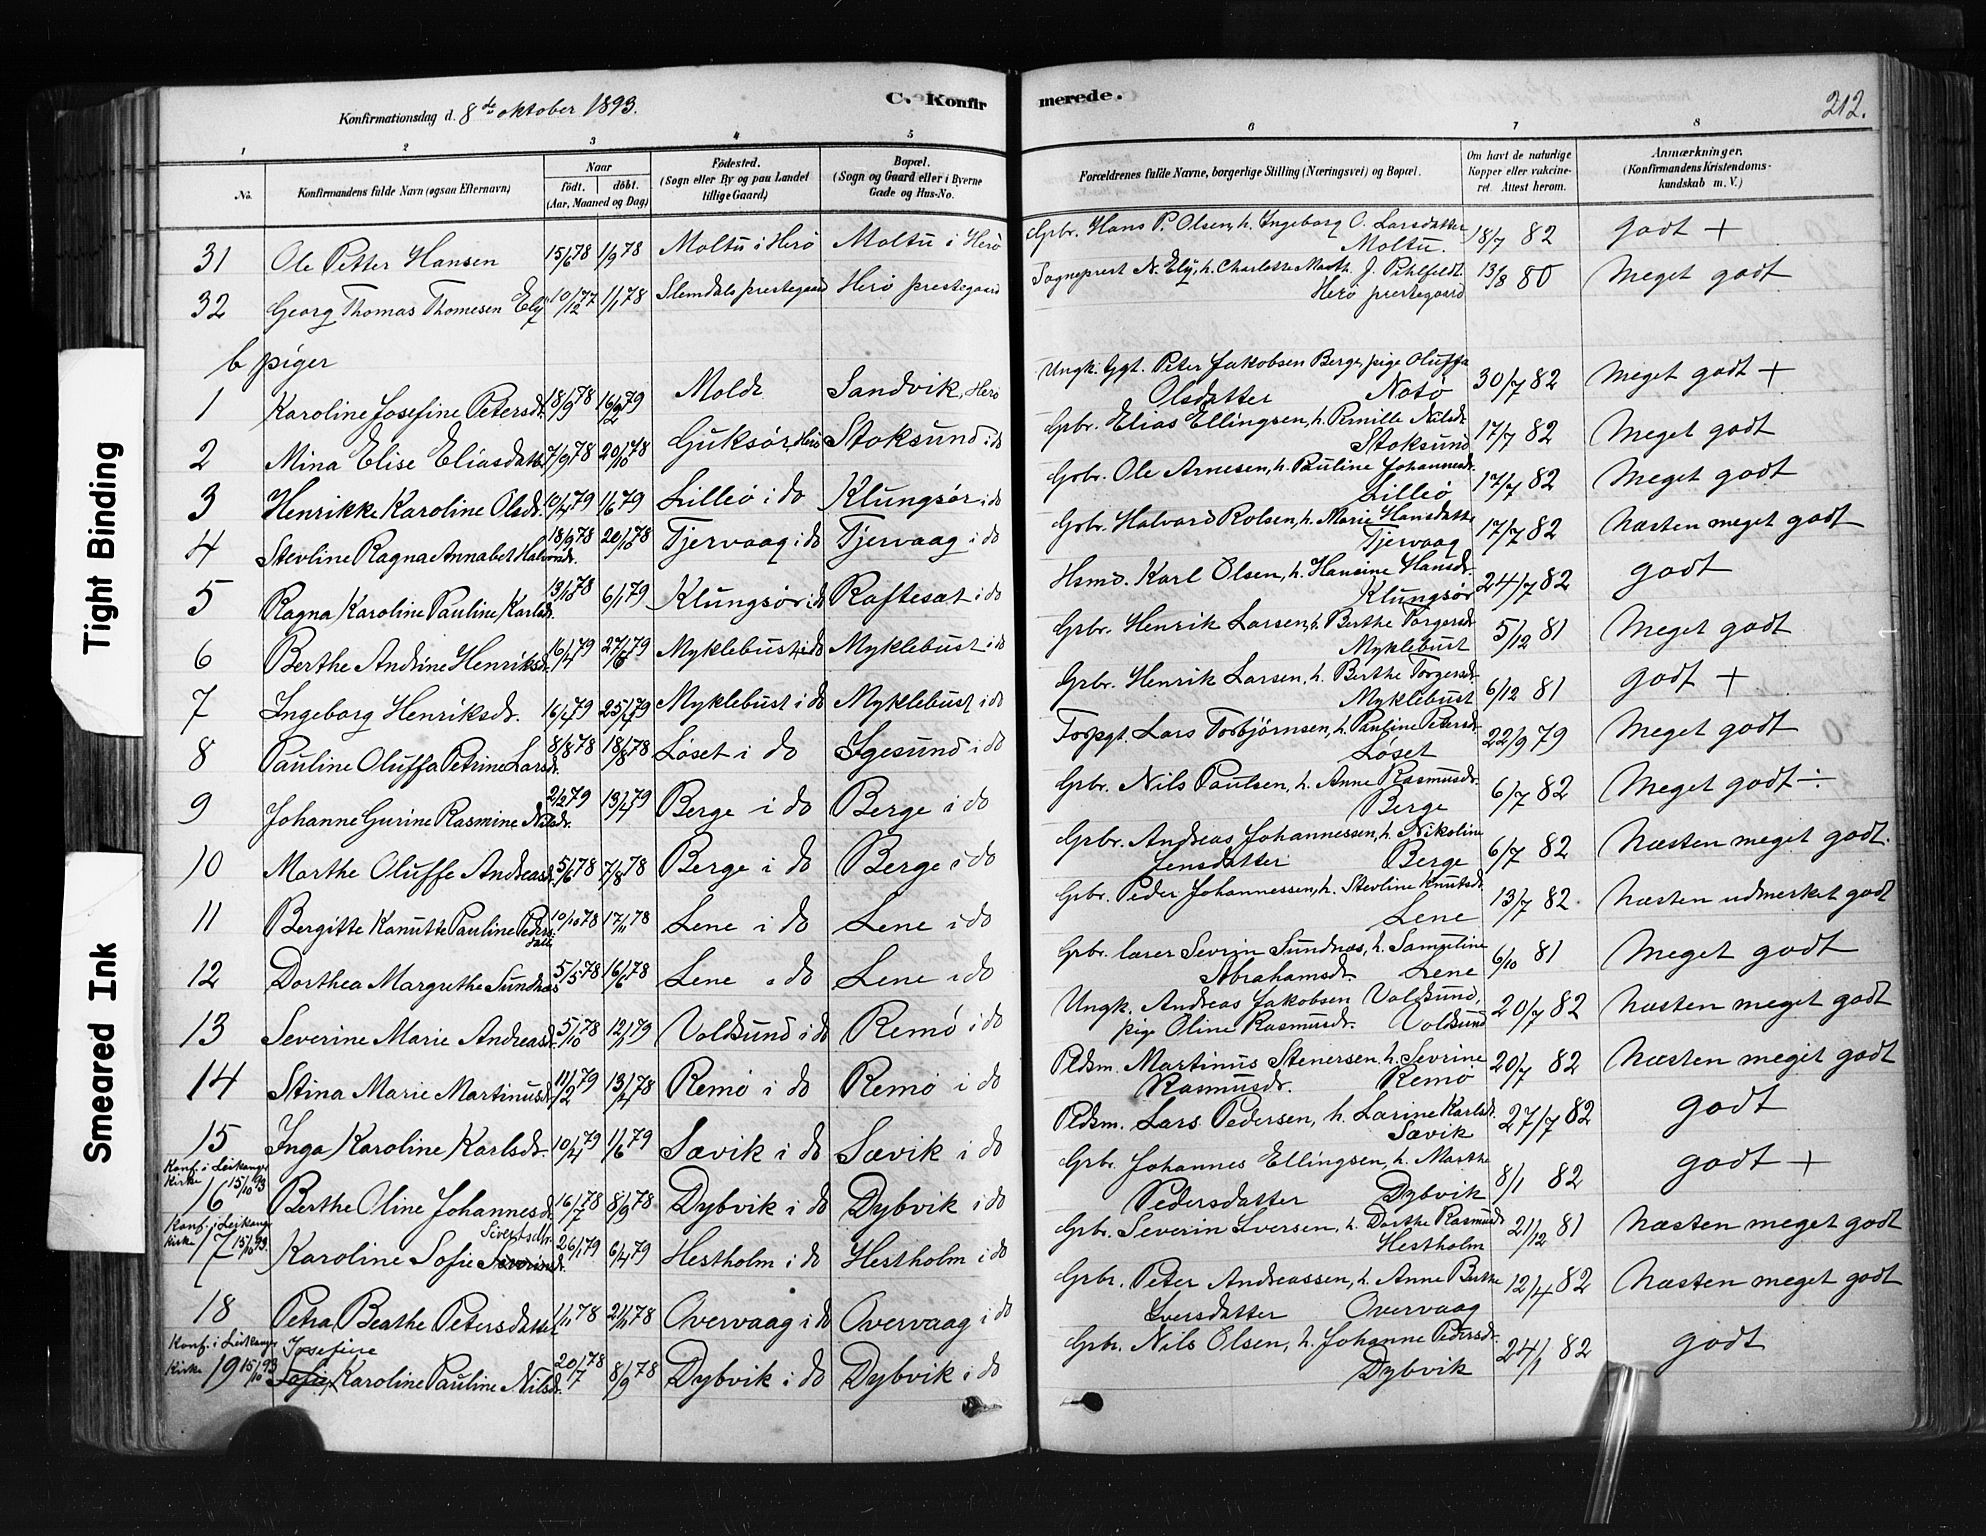 Konfirmationsdag d. 8de oktober 1893.
C. Konfirmerede.
212.
1 2 3 4 5 6 7 8
No. Konfirmandens fulde Navn (ogsaa Efternavn) Naar født. døbt. (Aar, Maaned og Dag) Fødested. (Sogn eller By og paa Landet tillige Gaard) Bopæl. (Sogn og Gaard eller i Byerne Gade og Hus-No. Forældrenes fulde Navne, borgerlige Stilling (Næringsvei) og Bopæl. Om havt de naturlige Kopper eller vakcineret. Attest herom. Anmærkninger. (Konfirmandens Kristendomskundskab m. V.)
31 Ole Petter Hansen 15/6 78 1/9 78 Moltu i Herø Moltu i Herø Grbr. Hans P. Olsen, h. Ingeborg O. Larsdatter Moltu. 18/7 82 godt +
32 Georg Thomas Thomesen Ely 10/12 77 1/1 78 Slemdals prestegaard Herø prestegaard Sogneprest N. Ely, h. Charlotte Math. J. Pihlfeldt Herø prestegaard 13/8 80 Meget godt
b piger
1 Karoline Josefine Petersdt. 18/9 78 16/2 79 Molde Sandvik, Herø Ungk. Ggt. Peter Jakobsen Berge, pige Oluffa Olsdatter Notø 30/7 82 Meget godt +
2 Mina Elise Eliasdatter 7/9 78 20/10 78 Gjuksør, Herø Stoksund i do Grbr. Elias Ellingsen, h. Pernille Nilsdt. Stoksund 17/7 82 Meget godt
3 Henrikke Karoline Olsdt. 10/4 79 1/6 79 Lilleø i do Klungsør i do Grbr. Ole Arnesen, h. Pauline Johannesdt. Lilleø 17/7 82 Meget godt
4 Stevline Ragna Annabet Halvordt. 18/9 78 20/10 78 Tjervaag i do Tjervaag i do Grbr. Halvard Rolsen, h. Marie Hansdatter Tjervaag 17/7 82 Næsten meget godt
5 Ragna Karoline Pauline Karlsdt. 13/10 78 6/1 79 Klungsør i do Raftesæt i do Hsmd. Karl Olsen, h. Hansine Hansdt. Klungsør 24/7 82 godt
6 Berthe Andrine Henriksdt. 16/4 79 27/6 79 Myklebust i do Myklebust i do Grbr. Henrik Larsen, h. Berthe Torgersdt. Myklebust 5/12 81 Meget godt
7 Ingeborg Henriksdt. 16/4 79 25/4 79 Myklebust i do Myklebust i do Grbr. Henrik Larsen, h. Berthe Torgersdt. Myklebust 6/12 81 godt +
8 Pauline Oluffa Petrine Larsdt. 8/8 78 18/8 78 Løset i do Igesund i do Forpgt. Lars Torbjørnsen, h. Pauline Petersdt. Løset 22/9 79 Meget godt
9 Johanne Gurine Rasmine Nilsdt. 2/2 79 13/4 79 Berge i do Berge i do Grbr. Nils Paulsen, h. Anne Rasmusdt. Berge 6/7 82 Meget godt ÷
10 Marthe Oluffe Andreasdt. 5/6 78 7/8 78 Berge i do Berge i do Grbr. Andreas Johannessen, h. Nikoline Jensdatter Berge 6/7 82 Næsten meget godt.
11 Bergitte Kanutte Pauline Pedersdatt. 10/10 78 17/11 78 Lene i do Lene i do Grbr. Peder Johannessen, h. Stevline Knutsdt. Lene 13/7 82. Næsten udmerket godt
12 Dorthea Margrethe Sundnæs 5/5 78 16/6 78 Lene i do Lene i do Grbr. lærer Sevrin Sundnæs, h. Sameline Abrahamsdt. Lene 6/10 81 Meget godt
13 Severine Marie Andreasdt. 5/10 78 12/1 79 Voldsund i do Remø i do Ungk. Andreas Jakobsen Voldsund, pige Oline Rasmusdt. Voldsund 20/7 82 Næsten meget godt
14 Stina Marie Martinusdt. 11/2 79 13/4 78 Remø i do Remø i do Pldsm. Martinus Stenersen, h. Sevrine Rasmusdt. Remø 20/7 82 Næsten meget godt
15 Inga Karoline Karlsdt. 10/4 79 1/6 79 Sævik i do Sævik i do Pldsm. Lars Pedersen, h. Larine Karlsdt. Sævik 27/7 82 godt
Konf. i Leikanger kirke 15/10 93
16 Berthe Oline Johannesdt. 16/7 78 8/9 78 Dybvik i do Dybvik i do Grbr. Johannes Ellingsen, h. Marthe Pedersdatter Dybvik 8/1 82 godt +
Konf. i Leikanger kirke 15/10 93.
17 Karoline Sofie Severinsdt. Sivertsdtr. 26/1 79 6/4 79 Hestholm i do Hestholm i do Grbr. Severin Iversen, h. Dorthe Rasmusdt Hestholm 21/12 81 Næsten meget godt
18 Petra Beathe Petersdatter 1/11 78 24/11 78 Overvaag i do Overvaag i do Grbr. Peter Andreassen, h. Anne Berthe Iversdatter Overvaag 12/4 82 Næsten meget godt
Konf. i Leikanger kirke 15/10 93
19 Sofie Josefine Karoline Pauline Nilsdt. 20/7 78 8/9 78 Dybvik i do Dybvik i do Grbr. Nils Olsen, h. Johanne Pedersdt. Dybvik 24/1 82 godt
Tight Binding
Smeared Ink